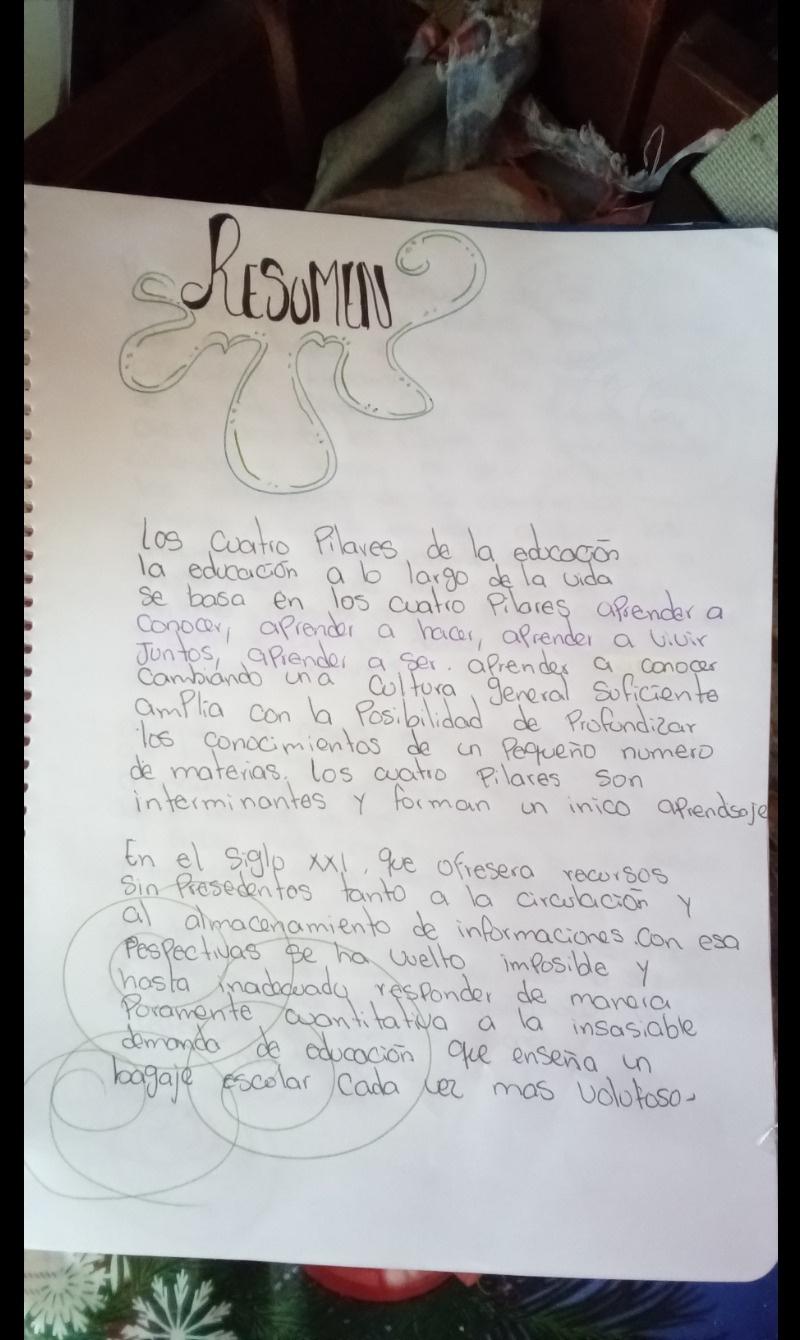 RESUMEN
los cuatro Pilares de la educación
la educación a lo largo de la vida
se basa en los cuatro Pilares aprender a
conocer, aprender a hacer, aprender a vivir
Juntos, aprender a ser. aprender a conocer
Cambiando una Cultura general suficiente
amplia con la Posibilidad de Profundizar
los conocimientos de un Pequeño numero
de materias. los cuatro Pilares son
interminantes y forman un inico aprendsaje
En el siglo XXI, que ofresera recursos
sin Presedentos tanto a la circulación y
al almacenamiento de informaciones. Con esa
Pespectivas se ha vuelto imposible y
hasta responder de manera
Poramente cuantitativa a la insasiable
demanda de educación que enseña un
bagaje escolar cada vez mas volutoso-